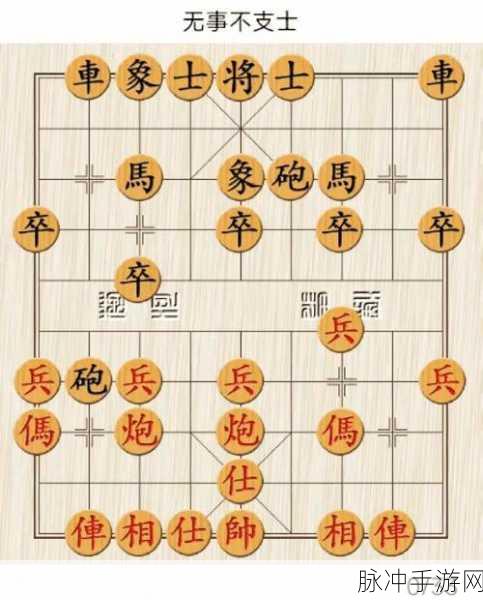 无事不支士
車 象 士 将 士 車
馬 象 砲 馬
卒 卒 卒 卒
卒
兵
兵 砲 兵 兵 兵
傌 炮 炮 傌
仕
俥 相 仕 帥 相 俥
脉冲手游网